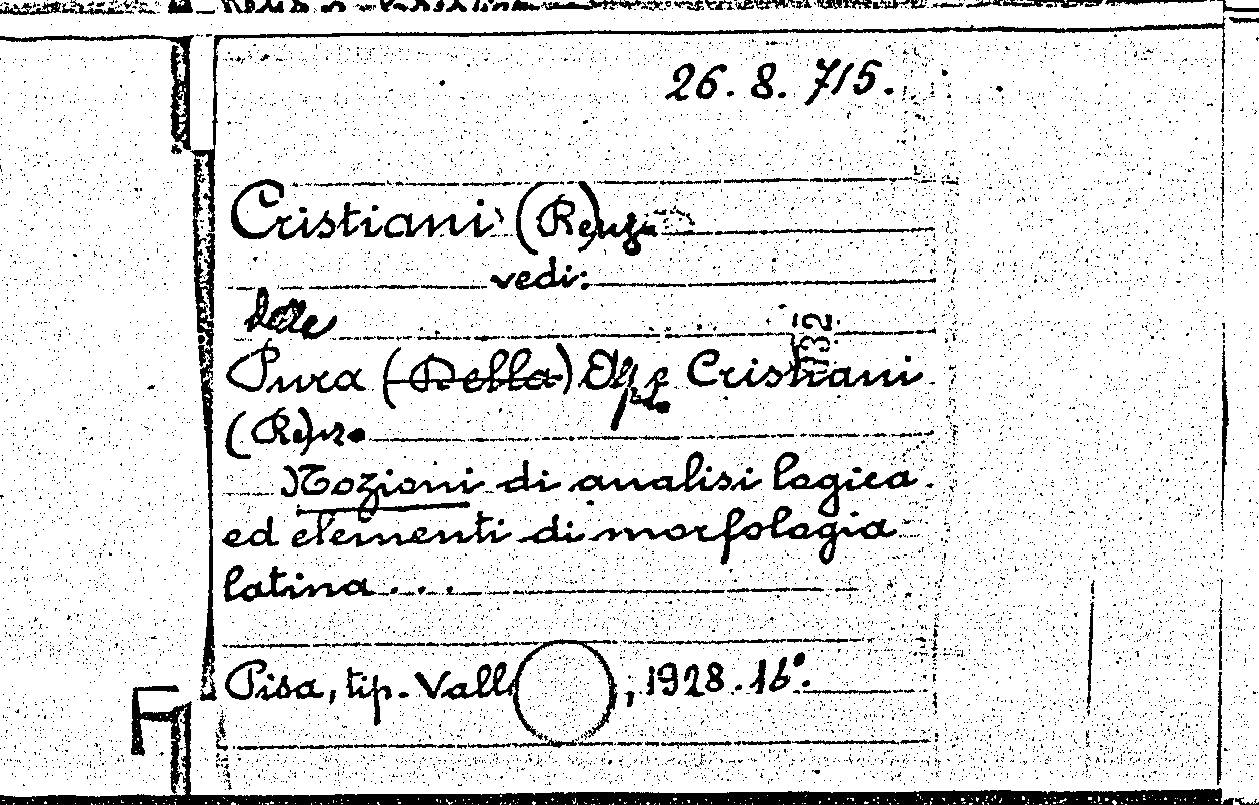 26. 8. 715.
Cristiani (Renzo
vedi:
delle
Pura (Della) Cristiani
(Renzo
Nozioni di analisi logica
ed elementi di morfologia
latina ...
Pisa, tip. , 1928. 16°.